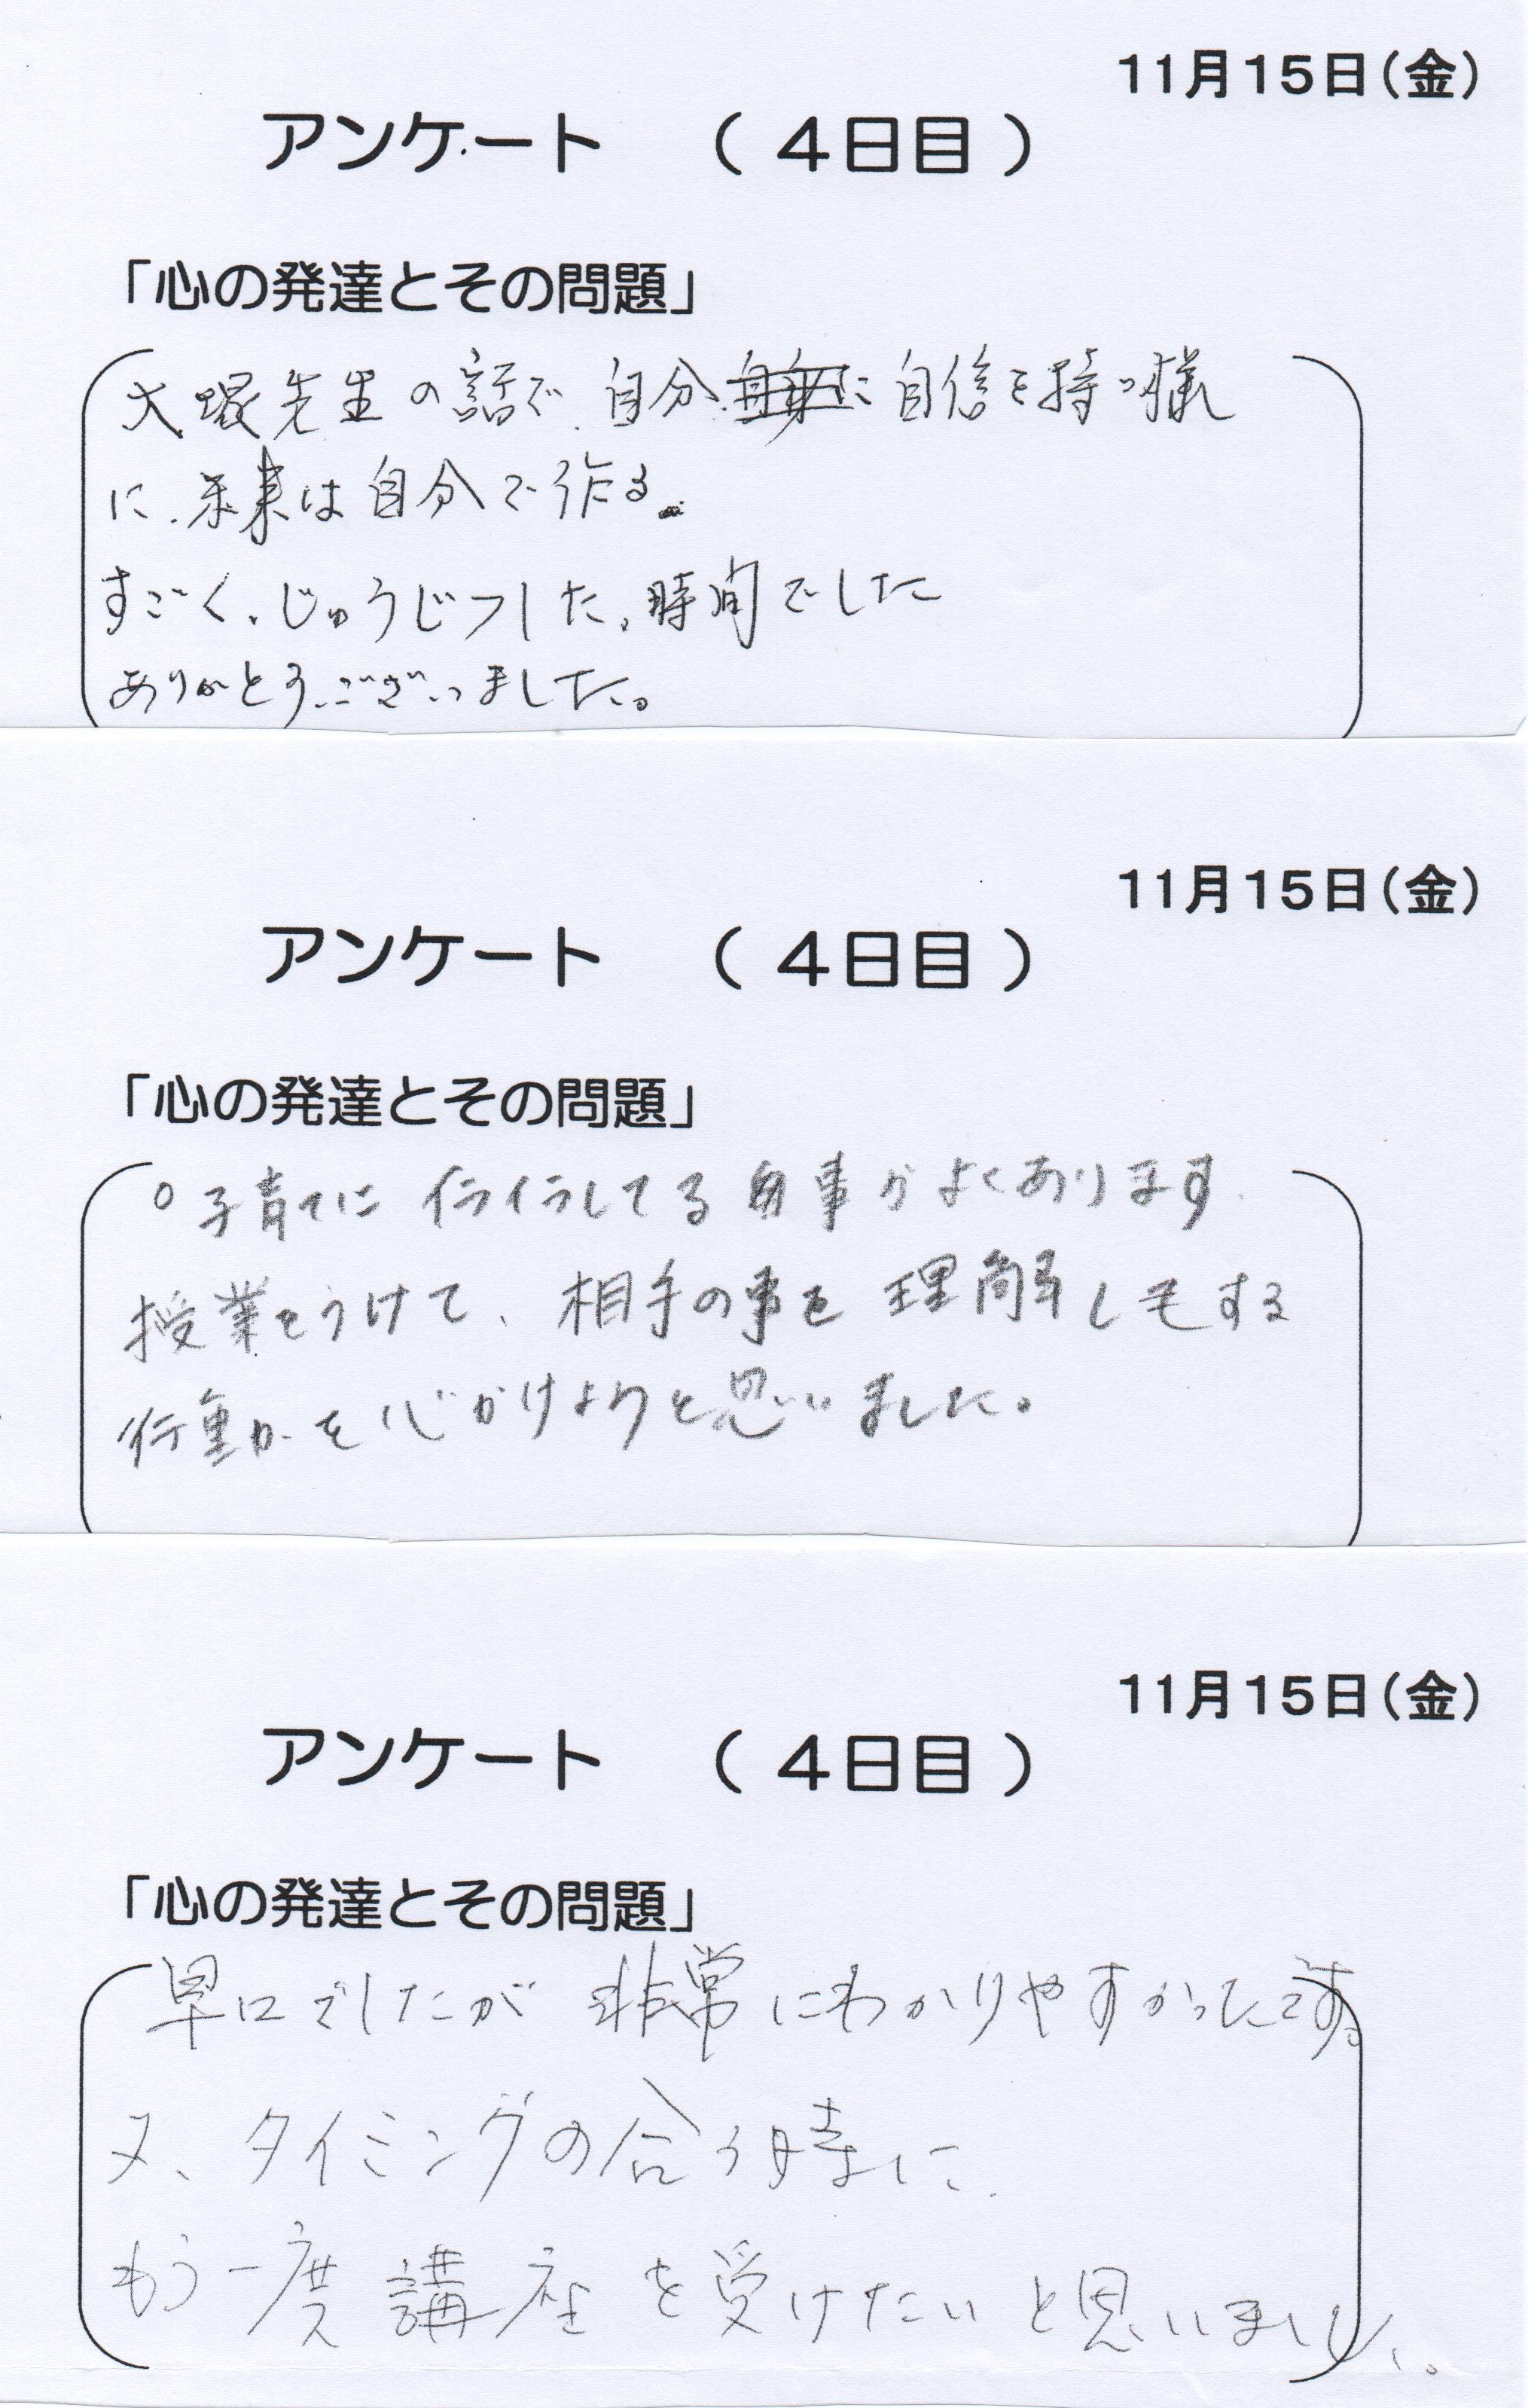 11月15日(金)
アンケート (4日目)
「心の発達とその問題」
大塚先生の話で、自分に自信を持つ様
に、未来は自分で作る。
すごく、じゅうじつした、時間でした
ありがとうございました。
11月15日(金)
アンケート (4日目)
「心の発達とその問題」
○子育てにイライラしてる事がよくあります。
授業をうけて、相手の事を理解しする
行動を心がけようと思いました。
11月15日(金)
アンケート (4日目)
「心の発達とその問題」
早口でしたが 非常にわかりやすかったです。
又、タイミングの合う時に、
もう一度講座を受けたいと思いました。